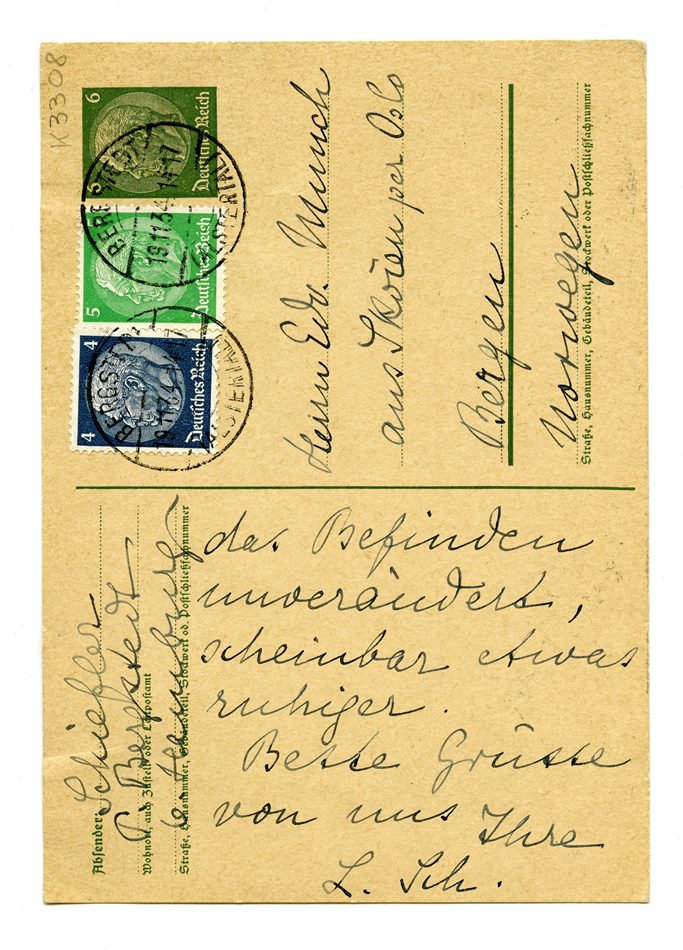 K3308
6
6
Deutsches Reich
5
Deutsches Reich
4
4
Deutsches Reich
BERGSTEDT
19.11.34.14-17
(BZ. STERIAL)
BERGSTEDT
19.11.34.14-17
Herrn Edv. Munch
aus Sköien per Oslo
Bergen
Norwegen
Straße, Hausnummer, Gebäudeteil, Stockwerk oder Postschließfachnummer
Absender: Schiefler
P. Bergstedt
Wohnort, auch Zustell- oder Leitpostamt
b. Hamburg
Straße, Hausnummer, Gebäudeteil, Stockwerk od. Postschließfachnummer
das Befinden
unverändert,
scheinbar etwas
ruhiger.
Beste Grüsse
von uns Ihre
L. Sch.